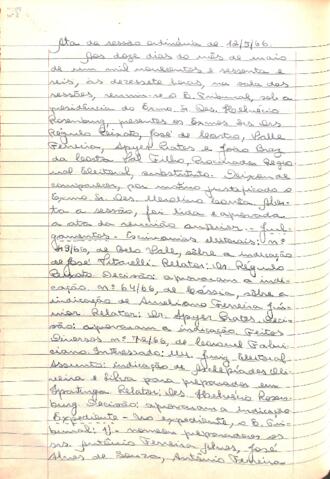 Ata da sessão ordinária de 12/5/66.
Aos doze dias do mês de maio
de um mil novecentos e sessenta e
seis, às dezessete horas, na sala das
sessões, reuniu-se o E. Tribunal, sob a
presidência do Exmo. Sr. Des. Helvécio
Rosenburg, presentes os Exmos. Srs. Drs.
Régulo Peixoto, José de Castro, Valle
Ferreira, Spyer Prates e João Braz
da Costa Val Filho, Procurador Regio
nal Eleitoral, substituto. Deixou de
comparecer, por motivo justificado o
Exmo. Sr. Des. Merolino Corrêa. Aber
ta a sessão, foi lida e aprovada
a ata da reunião anterior. - Jul-
gamentos - Escrivanias eleitorais: nº
/66, de Belo Vale, sobre a indicação
de José Relator: Dr. Régulo
Peixoto Decisão: aprovaram a indi-
cação. nº 64/66, de Cássia, sobre a
indicação de Aureliano Ferreira Jú-
nior Relator: Dr. Spyer Prates Deci-
são: aprovaram a indicação Feitos
Diversos nº 72/66, de Coronel Fabri-
ciano Interessado: MM. Juiz Eleitoral
Assunto: indicação de Asclepíades Oli-
veira e Silva para preparador em
Ipatinga Relator: Des. Helvécio Rosen-
burg Decisão: aprovaram a indicação
Expediente - No expediente, o E. Tri-
bunal: 1) - nomeou preparadores os
srs. Antônio Ferreira José
Alves de Souza, Antônio Ferreira